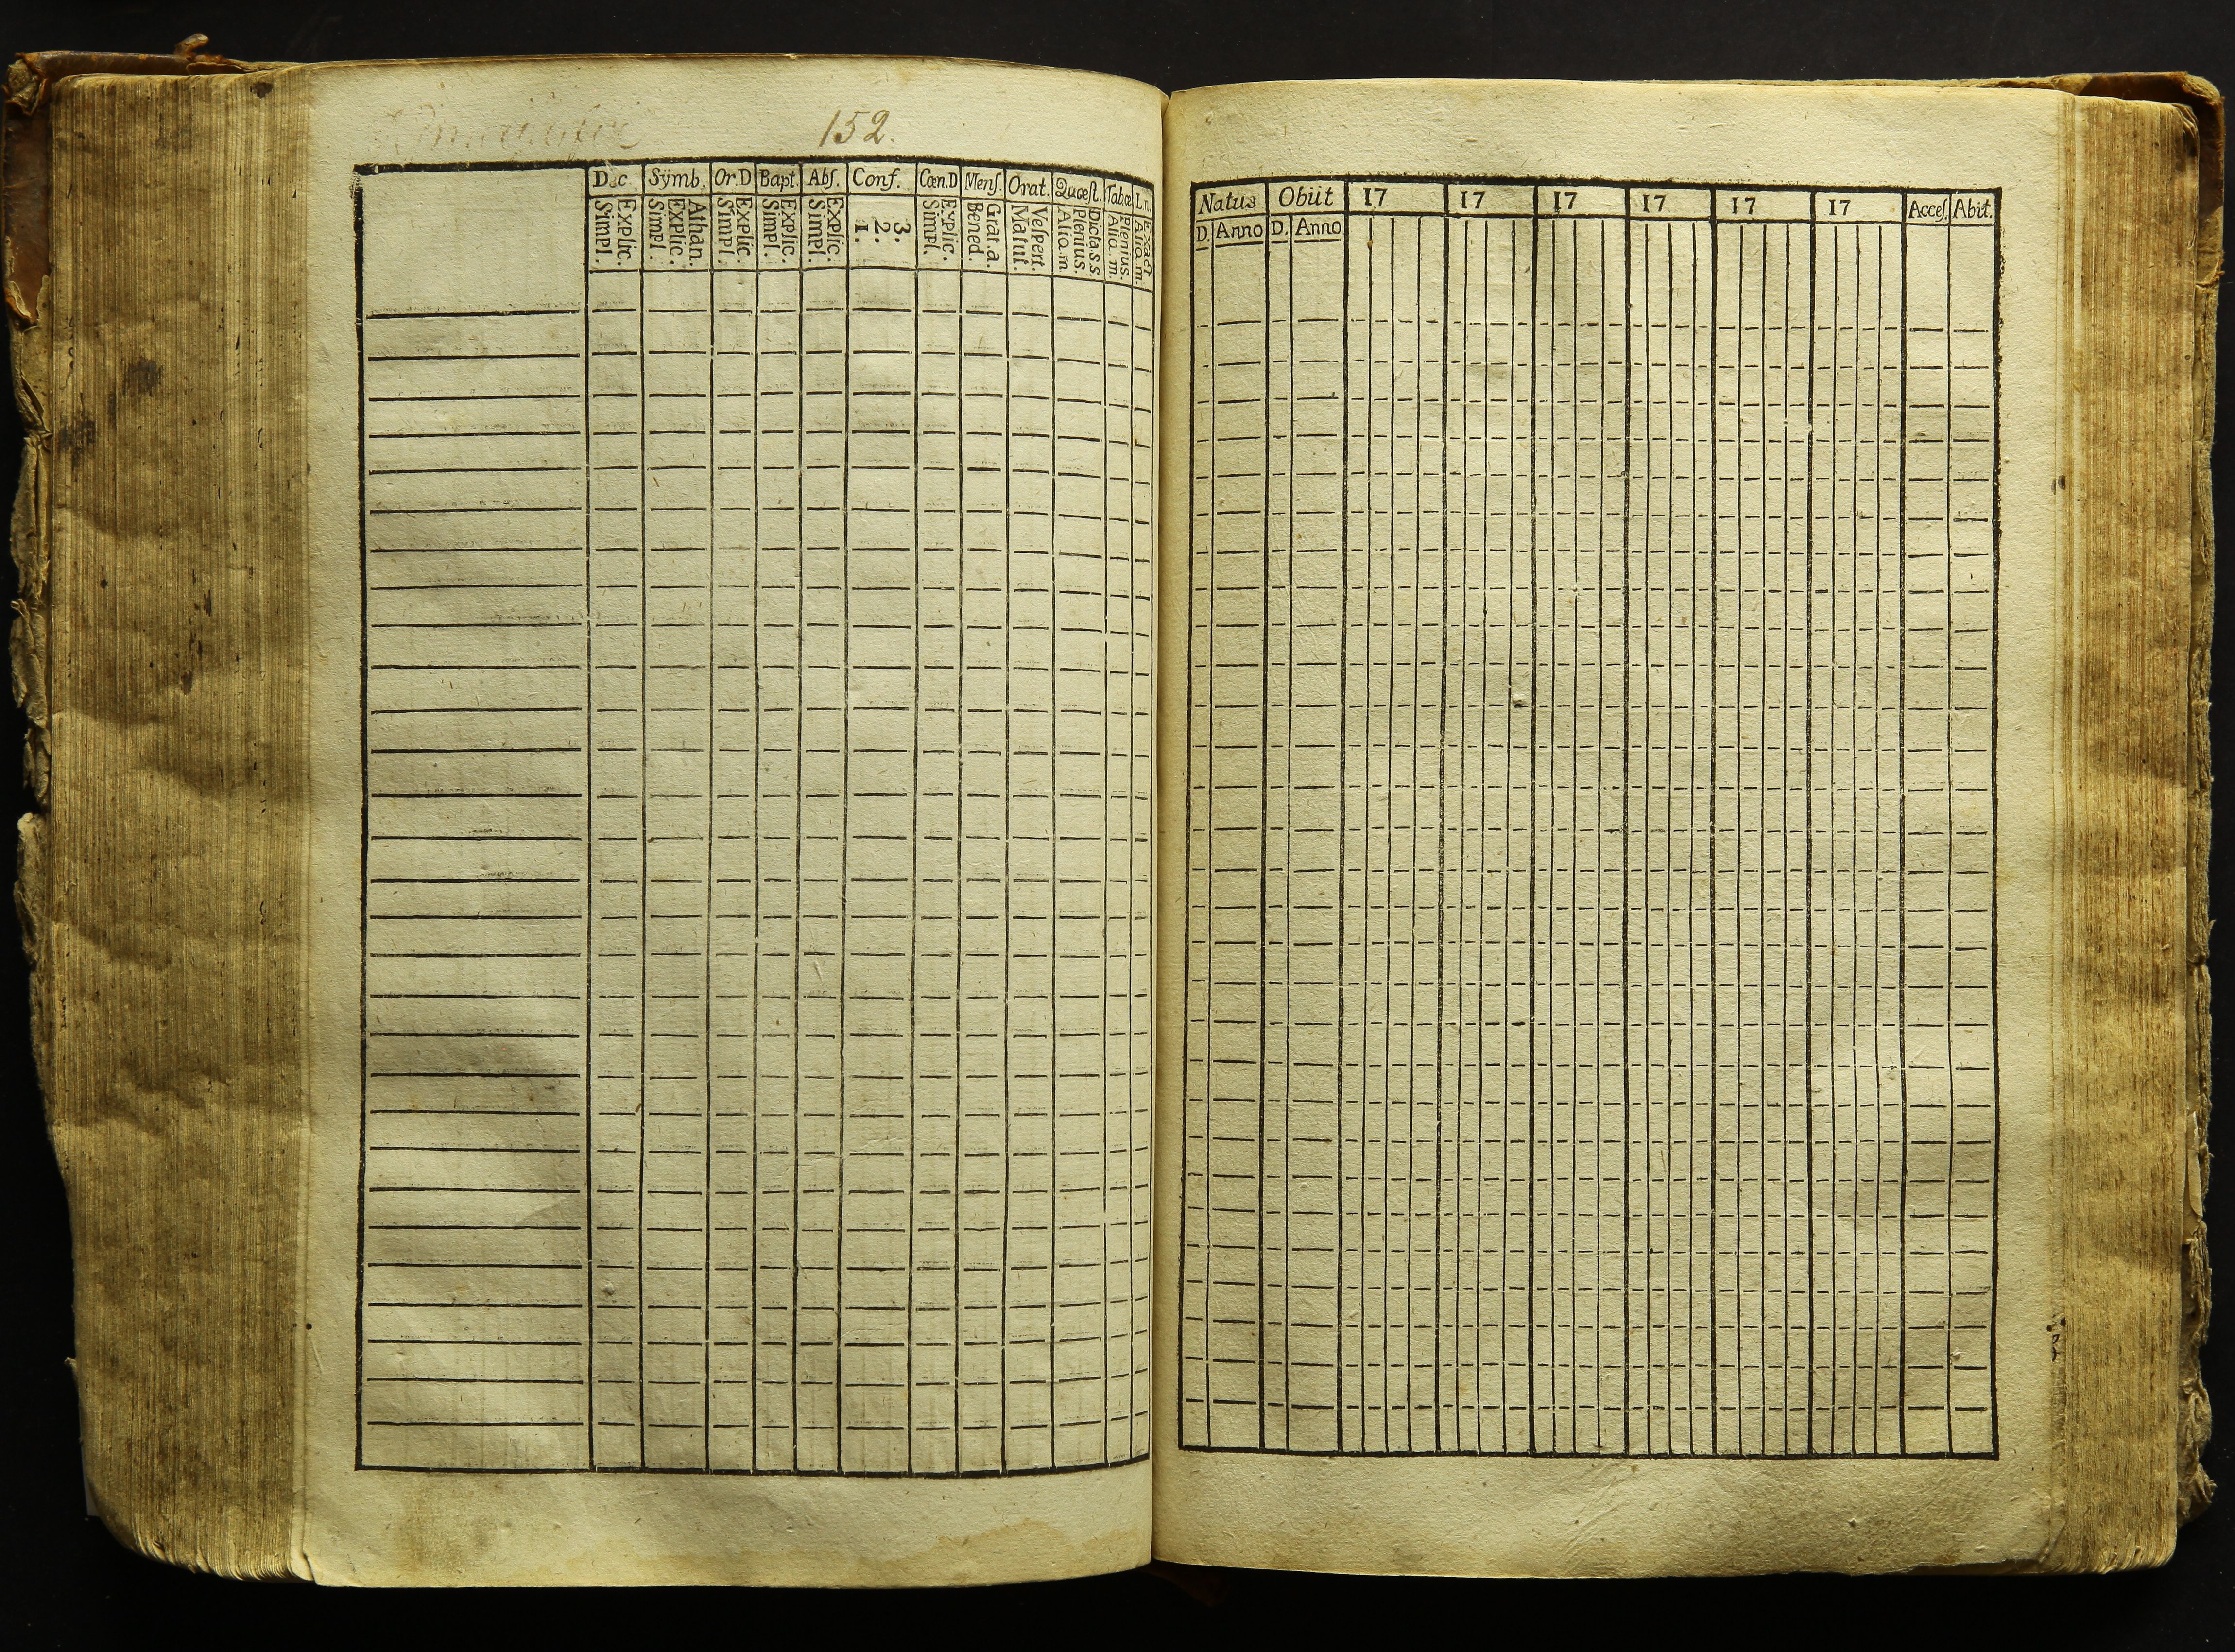 152.
Dec. Sÿmb. Or D Bapt. Abſ. Conf. Cœn.D Menſ. Orat. Quæſt. Tabæ L.n.
Explic. Simpl.
Athan. Explic. Simpl.
Explic. Simpl.
Explic. Simpl.
Explic. Simpl.
3. 2. 1.
Explic. Simpl.
Grat.a. Bened.
Veſpert. Matut.
Dicta.s.s Plenius. Aliq.m
Plenius. Aliq.m.
Exact Aliq.m.
Natus Obiit 17 17 17 17 17 17 Acceſ. Abit.
D. Anno D. Anno